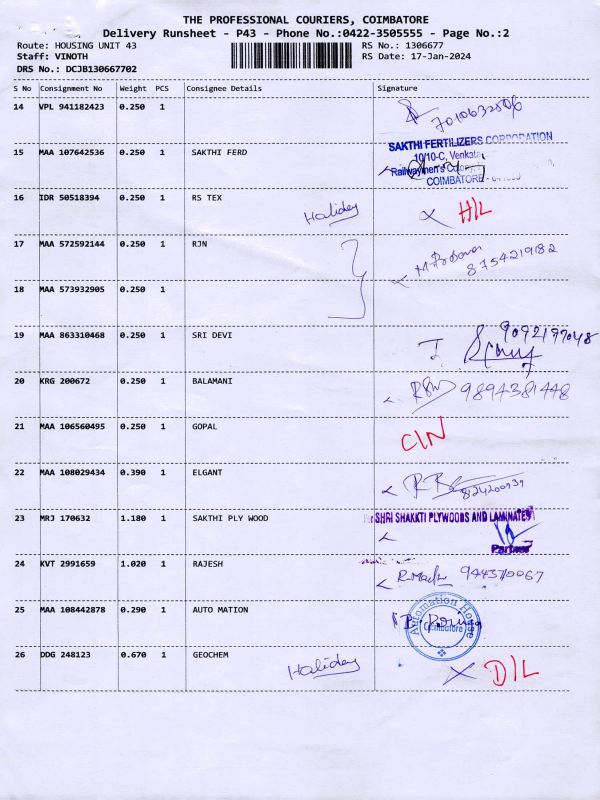 THE PROFESSIONAL COURIERS, COIMBATORE
Delivery Runsheet - P43 - Phone No.:0422-3505555 - Page No.:2
Route: HOUSING UNIT 43 RS No.: 1306677
Staff: VINOTH RS Date: 17-Jan-2024
DRS No.: DCJB130667702
S No Consignment No Weight PCS Consignee Details Signature
14 VPL 941182423 0.250 1
SAKTHI FERTILIZERS CORPORATION
15 MAA 107642536 0.250 1 SAKTHI FERD
10/10-C, Venkata
Railwaymen's Colony
COIMBATORE
16 IDR 50518394 0.250 1 RS TEX Haliday X H/L
17 MAA 572592144 0.250 1 RJN
8754219182
18 MAA 573932905 0.250 1
19 MAA 863310468 0.250 1 SRI DEVI 9092197048
20 KRG 200672 0.250 1 BALAMANI 9894381448
21 MAA 106560495 0.250 1 GOPAL C/N
22 MAA 108029434 0.390 1 ELGANT
23 MRJ 170632 1.180 1 SAKTHI PLY WOOD SHRI SHAKKTI PLYWOODS AND LAMINATES
Partner
24 KVT 2991659 1.020 1 RAJESH
25 MAA 108442878 0.290 1 AUTO MATION Automation House
Coimbatore
26 DDG 248123 0.670 1 GEOCHEM Haliday X D/L